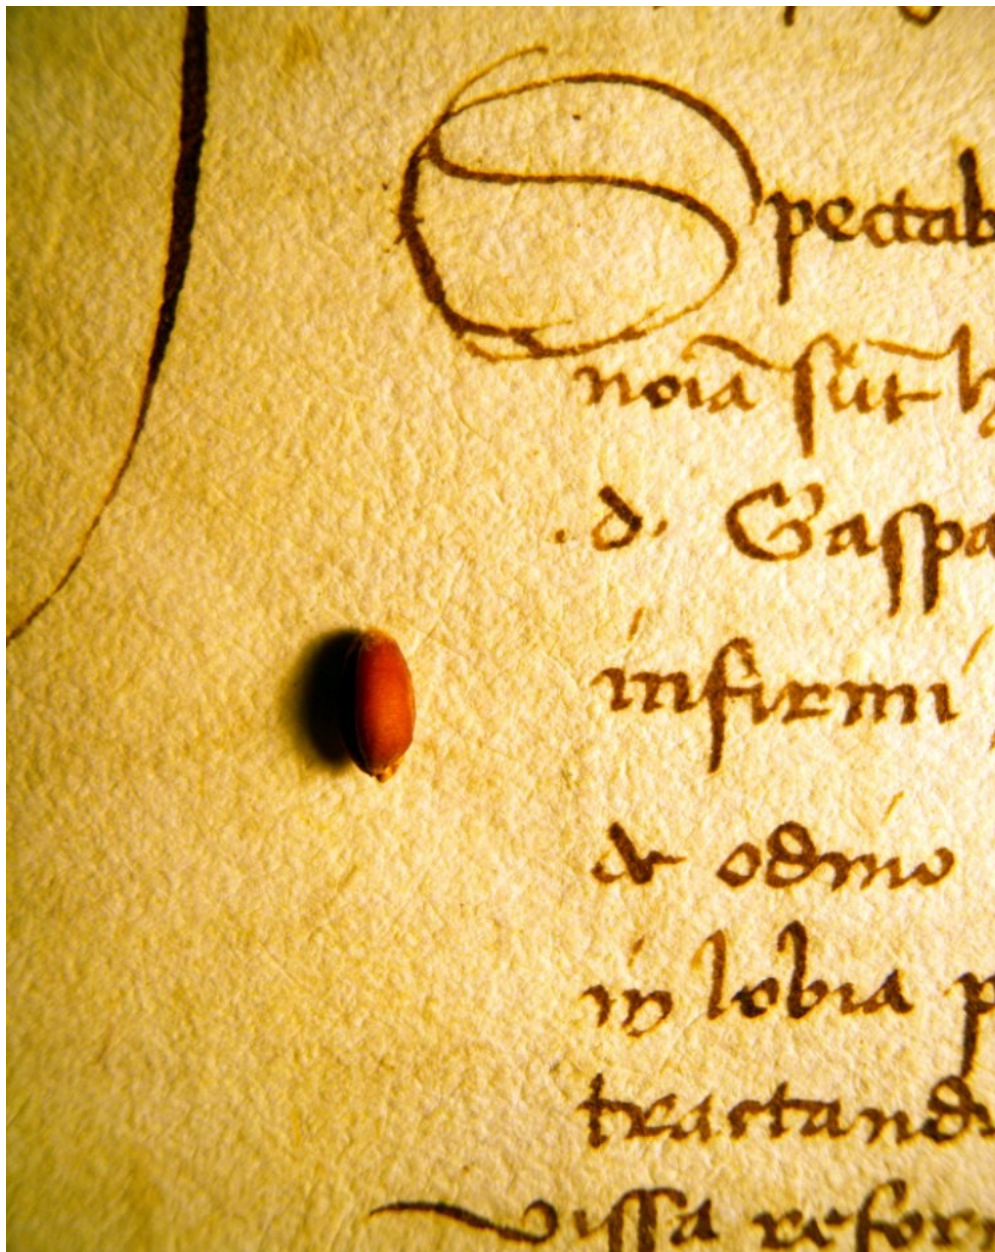 Spectab
noiā sūt h
.d. Gaspa
infirmi
& odmo
in lobia p
tractand
vissa refor